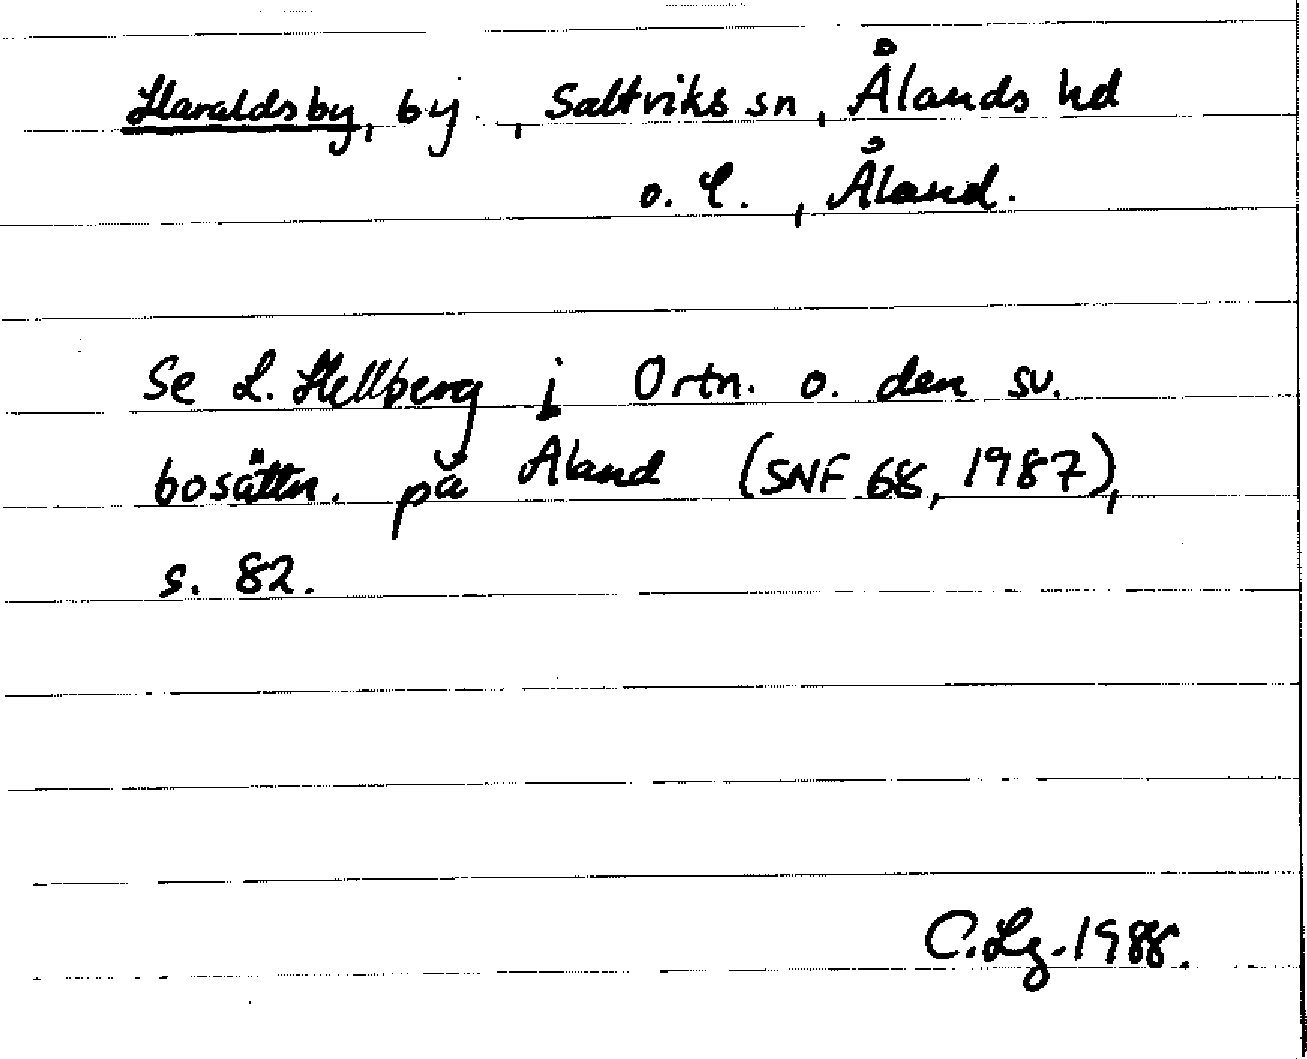 Haraldsby, by , Saltviks sn, Ålands hd
o. l. , Åland.
Se L. Hellberg i Ortn. o. den sv.
bosättn. på Åland (SNF 68, 1987),
s. 82.
C. Lg. 1988.